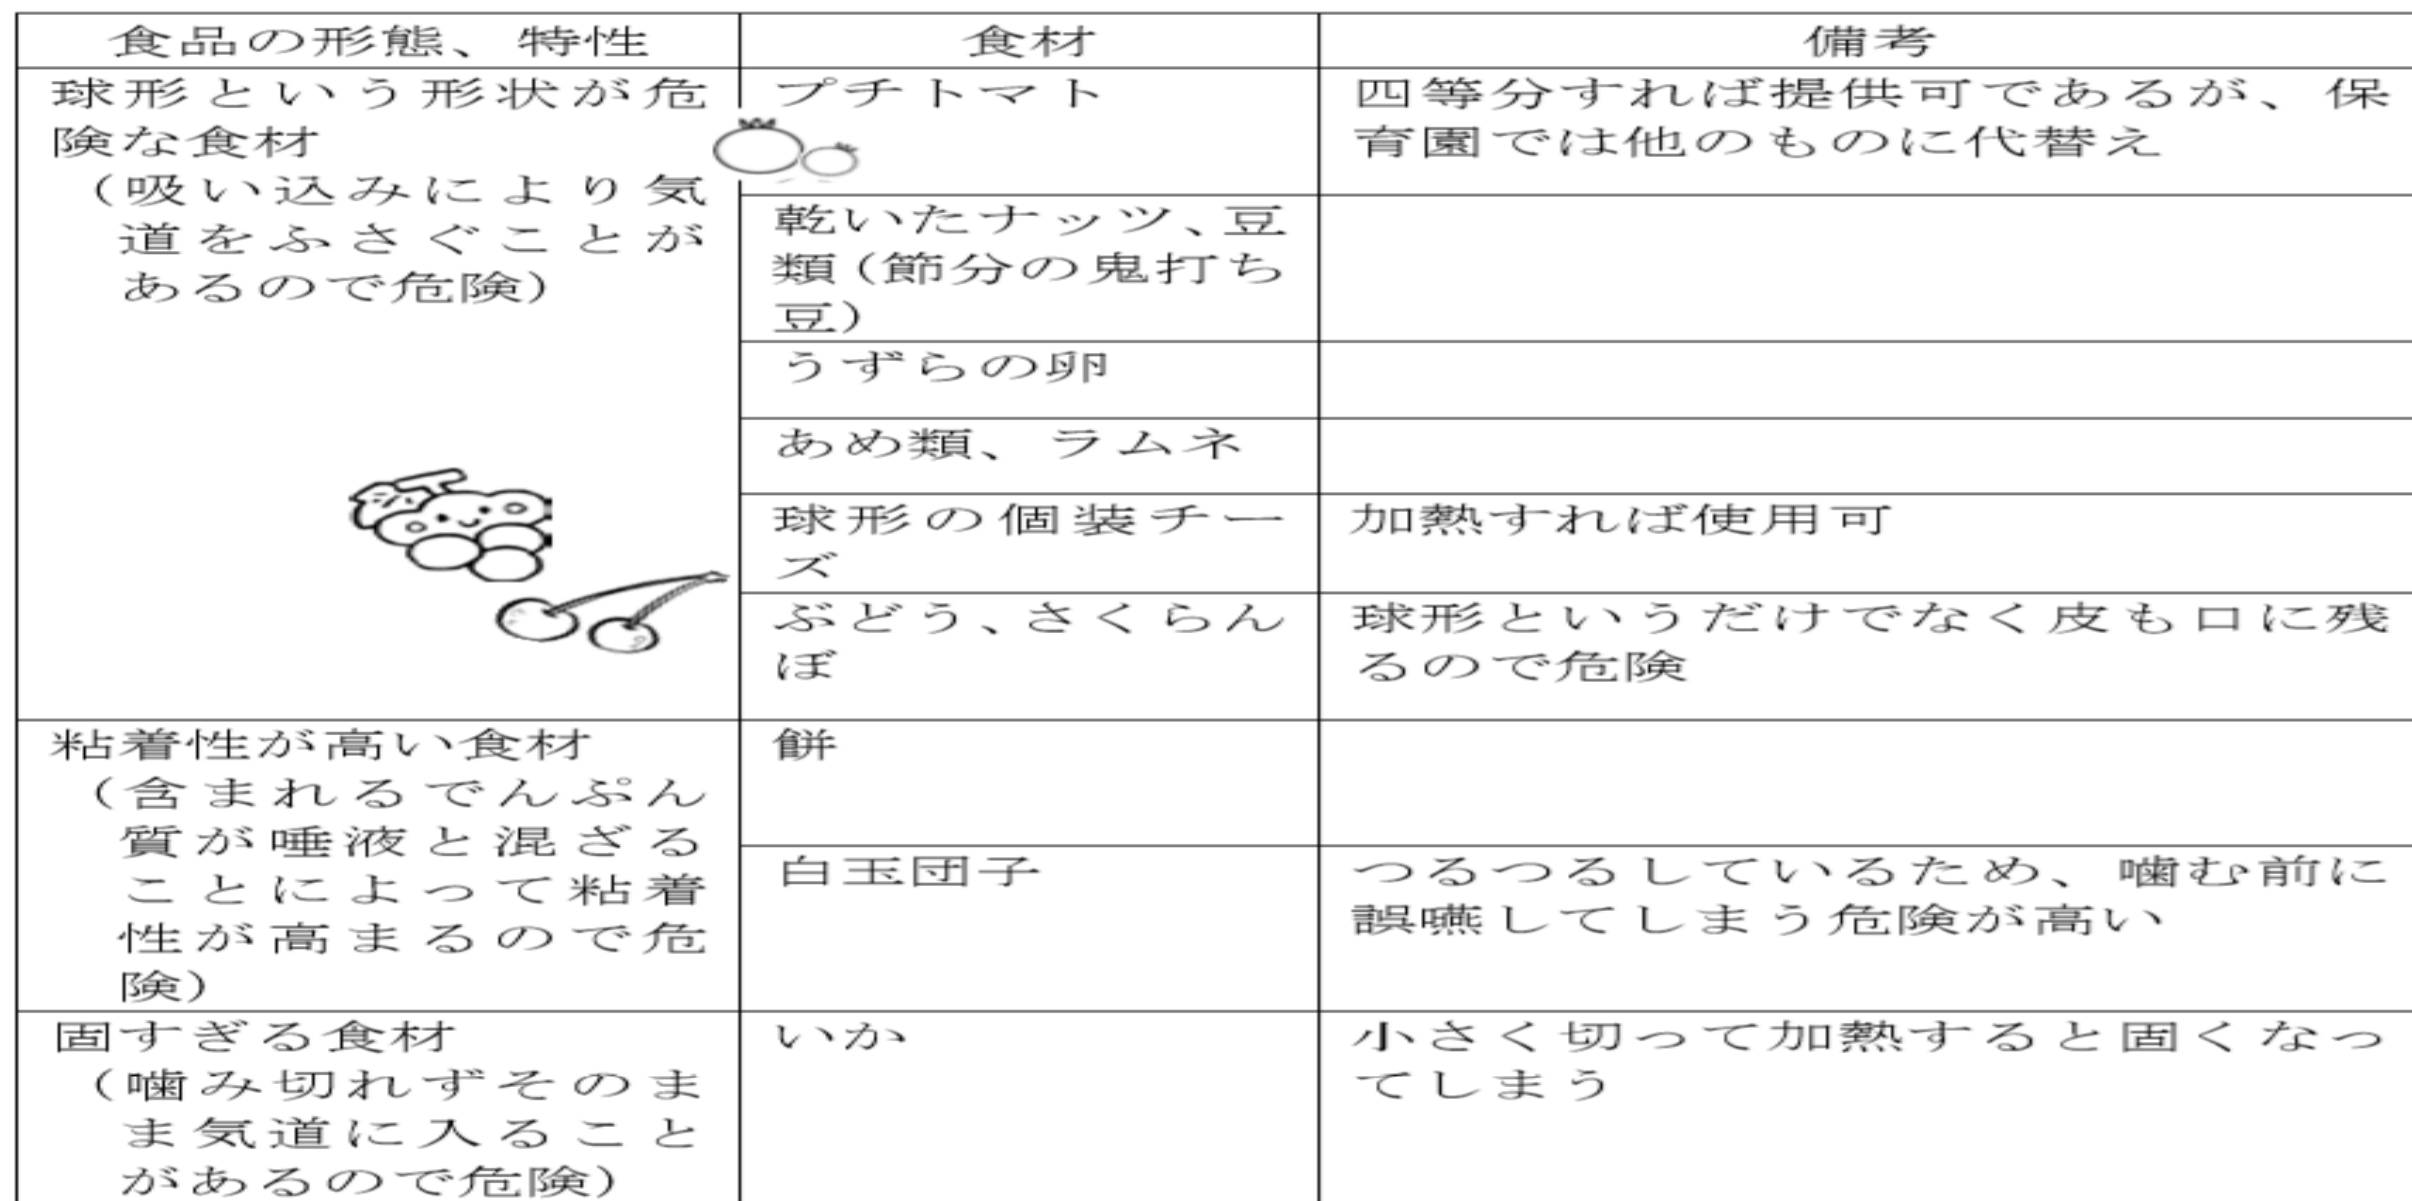 食品の形態、特性
食材
備考
球形という形状が危
険な食材
（吸い込みにより気
道をふさぐことが
あるので危険）
プチトマト
四等分すれば提供可であるが、保
育園では他のものに代替え
乾いたナッツ、豆
類（節分の鬼打ち
豆）
うずらの卵
あめ類、ラムネ
球形の個装チー
ズ
加熱すれば使用可
ぶどう、さくらん
ぼ
球形というだけでなく皮も口に残
るので危険
粘着性が高い食材
（含まれるでんぷん
質が唾液と混ざる
ことによって粘着
性が高まるので危
険）
餅
白玉団子
つるつるしているため、噛む前に
誤嚥してしまう危険が高い
固すぎる食材
（噛み切れずそのま
ま気道に入ること
があるので危険）
いか
小さく切って加熱すると固くなっ
てしまう